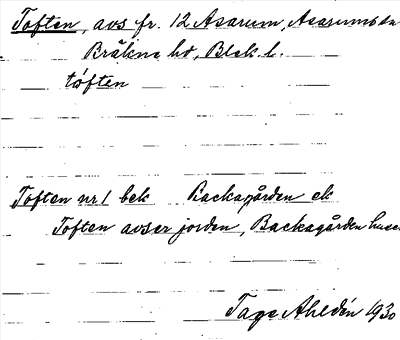 Toften, avs fr. 12 Asarum, Asarums sn
Bräkne hd, Blek. l.
tòften
Toften nr 1 bek Backagården ek
Toften avser jorden, Backagården huse
Tage Ahldén 1930